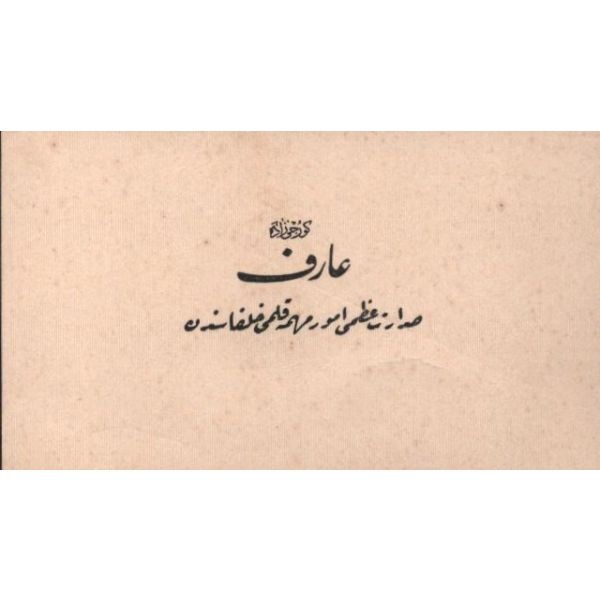 عارف
صدارت عظمی امور مهمه قلمی خلفاسندن